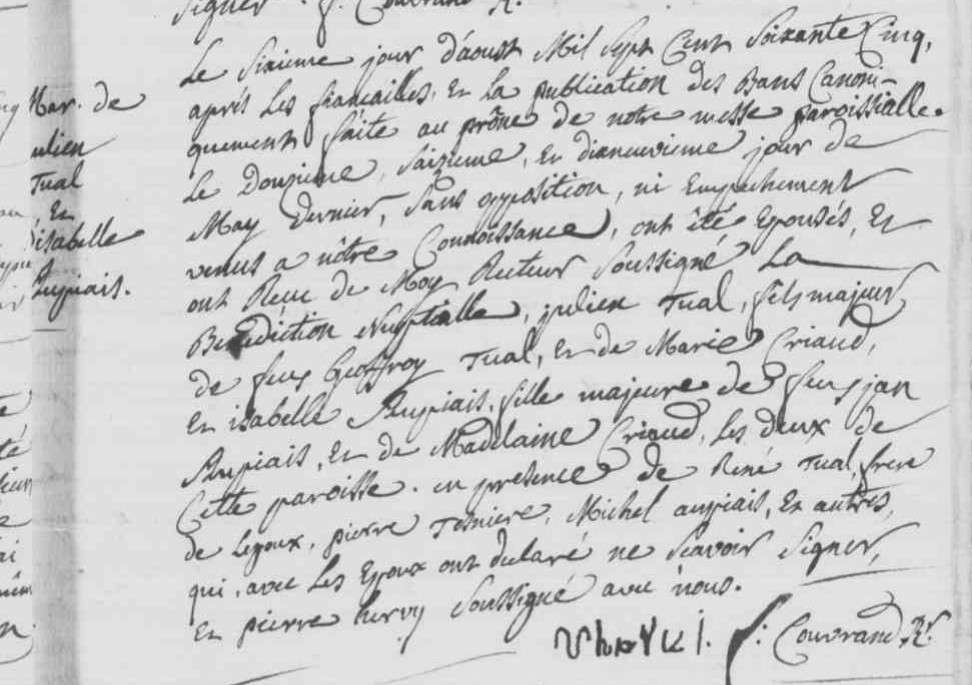 signer. f. Couvrand R.
Mar. de
ulien
Tual
Et
isabelle
Aupiais.
Le sixieme jour d'aoust Mil sept Cent soixante Cinq,
aprés Les fiancailles, Et La publication des Bans Canoni-
quement faite au prône de notre messe paroissialle.
Le Douzieme, saizieme, Et dixneuvieme jour de
May Dernier, sans opposition, ni Empechement
venus a nôtre Connoissance, ont été Epousés, Et
ont Receu de Moy Recteur soussigné La
Benediction Nuptialle, julien Tual, fils majeur
de feu Geoffroy Tual, Et de Marie Criaud,
Et isabelle Aupiais, fille majeure de feu jan
Aupiais, Et de Madelaine Criaud, Les deux de
Cette paroisse. en presence de René Tual, frere
de L'epoux, pierre Tesniere, Michel aupiais, Et autres,
qui, avec Les Epoux ont declaré ne sçavoir signer,
Et pierre hervy soussigné avec nous.
f: Couvrand, Rr.